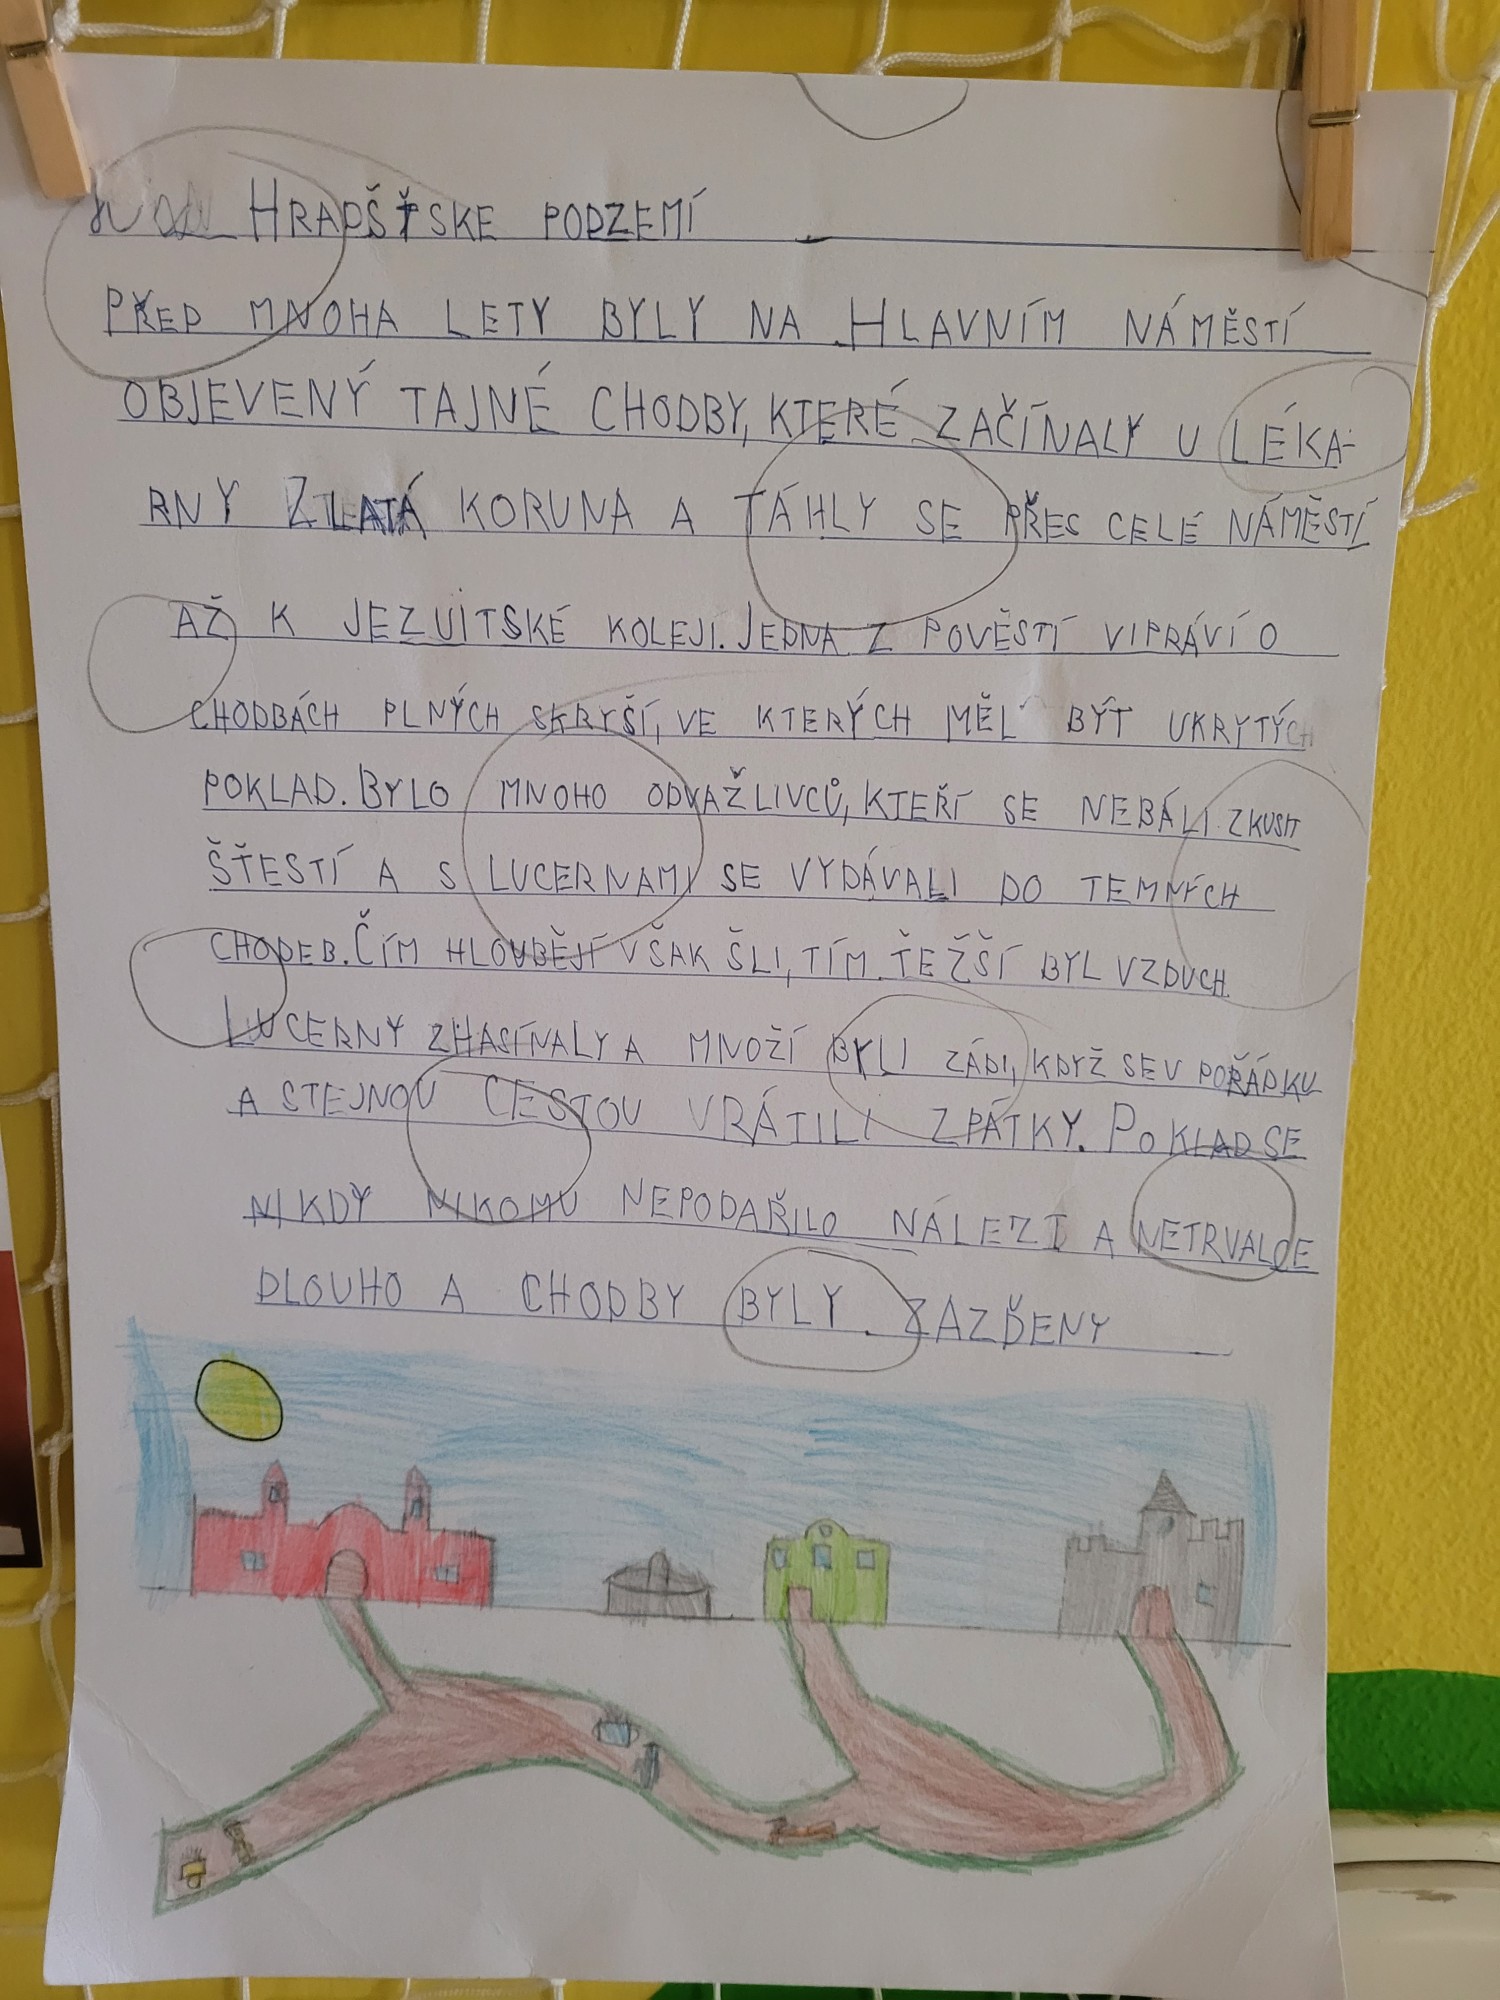 HRADŠŤSKE PODZEMÍ
PŘED MNOHA LETY BYLY NA HLAVNÍM NÁMĚSTÍ
OBJEVENÝ TAJNÉ CHODBY, KTERÉ ZAČÍNALY U LÉKA-
RNY ZLATÁ KORUNA A TÁHLY SE PŘES CELÉ NÁMĚSTÍ
AŽ K JEZUITSKÉ KOLEJI. JEDNA Z POVĚSTÍ VIPRÁVÍ O
CHODBÁCH PLNÝCH SKRYŠÍ, VE KTERÝCH MĚL BÝT UKRYTÝCH
POKLAD. BYLO MNOHO ODVAŽLIVCŮ, KTEŘÍ SE NEBÁLI ZKUSIT
ŠŤESTÍ A S LUCERNAMI SE VYDÁVALI DO TEMNÝCH
CHODEB. ČÍM HLOUBĚJÍ VŠAK ŠLI, TÍM ŤEŽŠÍ BYL VZDUCH.
LUCERNY ZHASÍNALY A MNOŽÍ BYLI ZÁDI, KDYŽ SE V POŘÁDKU
A STEJNOU CESTOU VRÁTILI ZPÁTKY. POKLAD SE
NIKDY NIKOMU NEPODAŘILO NÁLEZT A NETRVALOE
DLOUHO A CHODBY BYLY ZAZĎENY